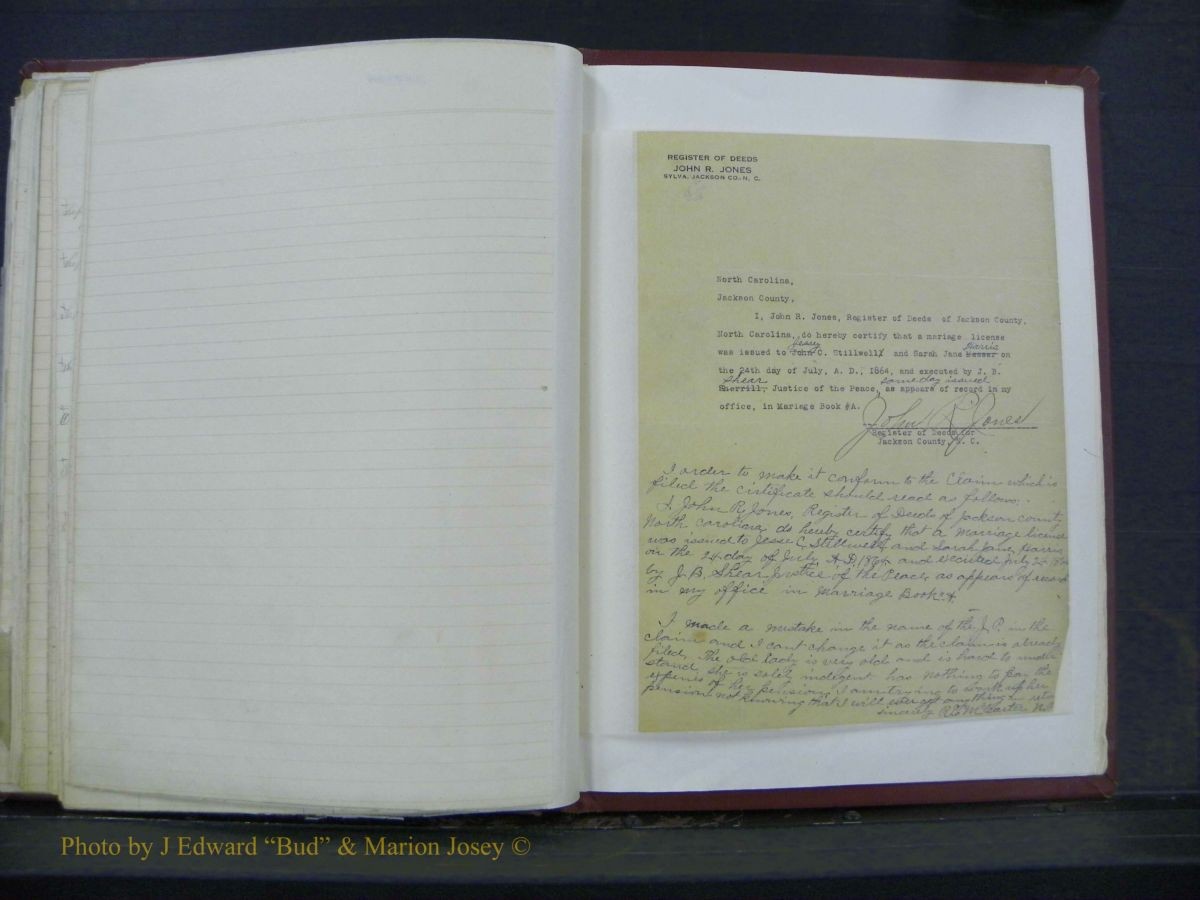 REGISTER OF DEEDS
JOHN R. JONES
SYLVA, JACKSON CO., N. C.
North Carolina,
Jackson County,
I, John R. Jones, Register of Deeds of Jackson County,
North Carolina, do hereby certify that a mariage license
Jessey Harris
was issued to John C. Stillwell and Sarah Jane Messer on
the 24th day of July, A. D., 1864, and executed by J. B.
Shear same day issued
Sherrill, Justice of the Peace, as appears of record in my
office, in Mariage Book #A.
John R. Jones
Register of Deeds for
Jackson County, N. C.
I order to make it conform to the Claim which is
filed the certificate should read as follows:
I John R. Jones, Register of Deeds of Jackson county
North Carolina, do hereby certify that a Marriage license
was issued to Jesse C. Stillwell and Sarah Jane Harris
on the 24 day of July A.D. 1864 and executed July 24
by J. B. Shear Justice of the Peace as appears of record
in my office in Marriage Book
I made a mistake in the name of the J. P. in the
claim and I cant change it as the claim is already
filed. The old lady is very old and is hard to under
stand she is indigent has nothing to pay the
expenses of her pension, I am trying to work up her
pension not knowing that I will ever get anything in
sincerely
Photo by J Edward “Bud” & Marion Josey ©